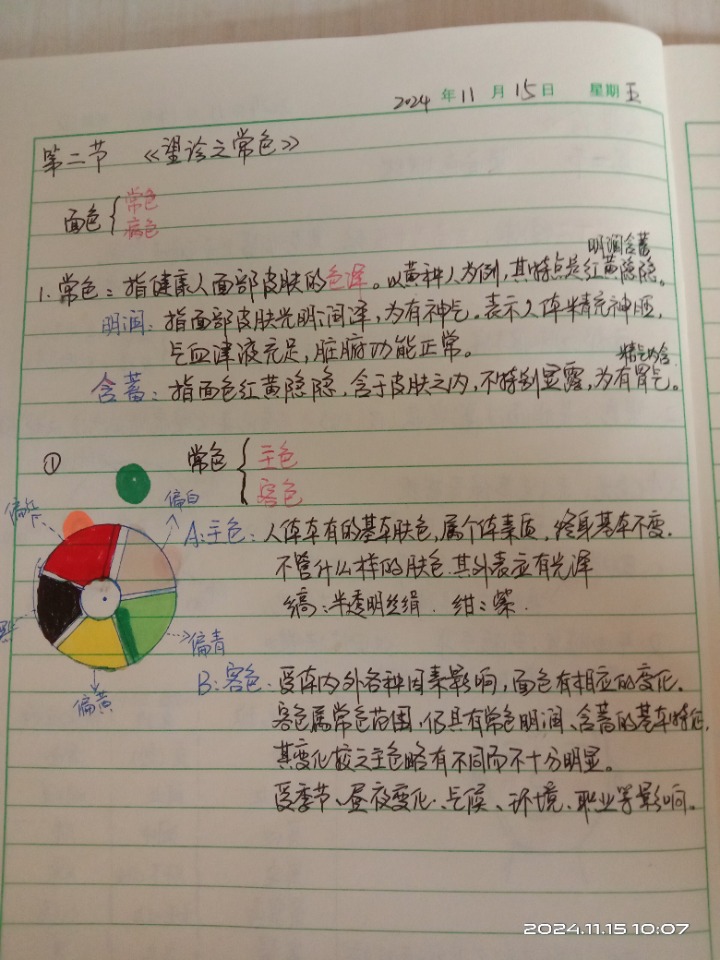 2024 年 11 月 15 日 星期 五
第二节 《望诊之常色》
面色 { 常色
病色
明润含蓄
1. 常色：指健康人面部皮肤的色泽。以黄种人为例，其特点是红黄隐隐。
明润：指面部皮肤光明润泽，为有神气。表示人体精充神旺，
气血津液充足，脏腑功能正常。
精气内含
含蓄：指面色红黄隐隐，含于皮肤之内，不特别显露，为有胃气。
① 常色 { 主色
客色
偏红
偏白
A：主色：人体本有的基本肤色，属个体素质，终身基本不变。
不管什么样的肤色.其外表应有光泽
缟：半透明丝绢. 绀：紫.
偏青
偏黄
B：客色.受体内外各种因素影响，面色有相应的变化.
客色属常色范围.仍具有常色明润、含蓄的基本特征,
其变化较之主色略有不同而不十分明显。
受季节、昼夜变化、气候、环境、职业等影响。
2024.11.15 10:07